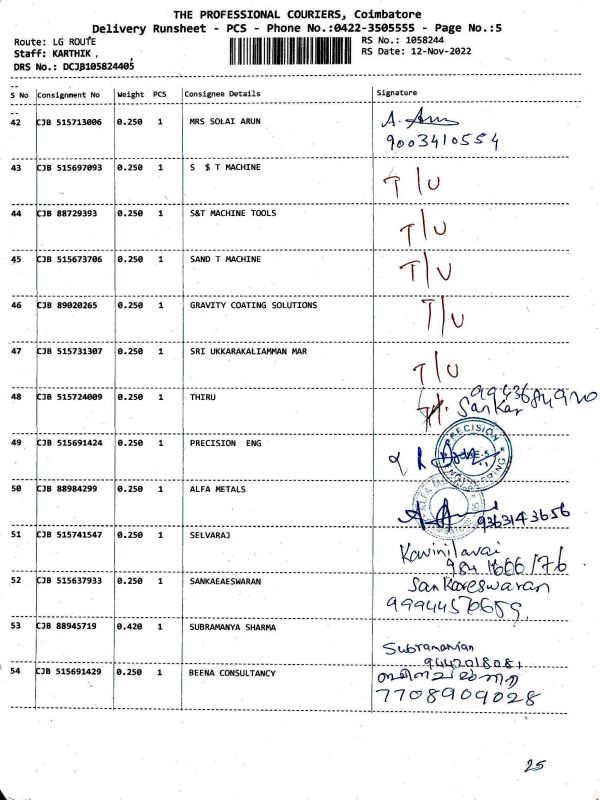 THE PROFESSIONAL COURIERS, Coimbatore
Delivery Runsheet - PCS - Phone No.:0422-3505555 - Page No.:5
Route: LG ROUTE
RS No.: 1058244
Staff: KARTHIK ,
RS Date: 12-Nov-2022
DRS No.: DCJB105824405
S No Consignment No Weight PCS Consignee Details Signature
42 CJB 515713006 0.250 1 MRS SOLAI ARUN A. Arun
9003410554
43 CJB 515697093 0.250 1 S $ T MACHINE T/U
44 CJB 88729393 0.250 1 S&T MACHINE TOOLS T/U
45 CJB 515673706 0.250 1 SAND T MACHINE T/U
46 CJB 89020265 0.250 1 GRAVITY COATING SOLUTIONS T/U
47 CJB 515731307 0.250 1 SRI UKKARAKALIAMMAN MAR T/U
9943684920
48 CJB 515724009 0.250 1 THIRU Sankar
49 CJB 515691424 0.250 1 PRECISION ENG
PRECISION ENGINEERING
50 CJB 88984299 0.250 1 ALFA METALS
9363143656
51 CJB 515741547 0.250 1 SELVARAJ Kavinilavai
52 CJB 515637933 0.250 1 SANKAEAESWARAN Sankareswaran
53 CJB 88945719 0.420 1 SUBRAMANYA SHARMA
Subramanian
9442018081
54 CJB 515691429 0.250 1 BEENA CONSULTANCY
7708909028
25